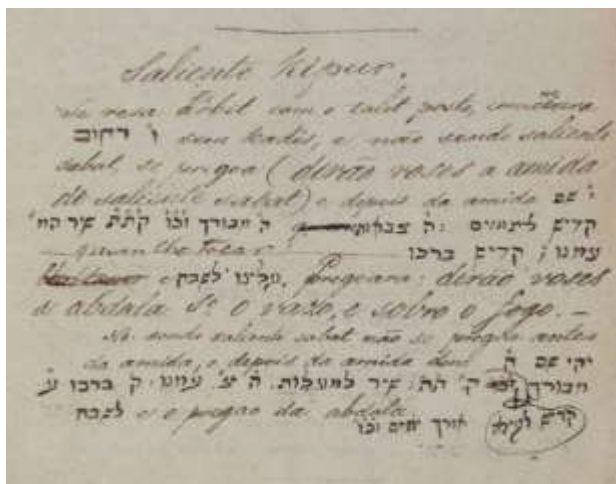 Saliente Kipur.
se resa Arbit com o talet posto, começa
והוא רחום sem Kadis, e não sendo saliente
sabat, se pregoa (dirão voses a amida
de saliente sabat) e depois da amida יהי שם
קדיש ליתהים ה' צבאות ה' המבורך וכו' קהת שיר המ'
עמנו; קדיש ברכו
quem the tocar
e עלינו לשבח. Pregoara: dirão voses
a abdala Sº o vazo, e sobro o fogo. —
No. sendo saliente sabat não se pregoa antes
da amida, e depois da amida יהי שם ה'
המבורך וכו' ק' תת: שיר למעלות. ה' צ' עמנו. ק' ברכו ע'
לשבח e o pregão da abdala
אורך ימים וכו'
קדיש לעילא